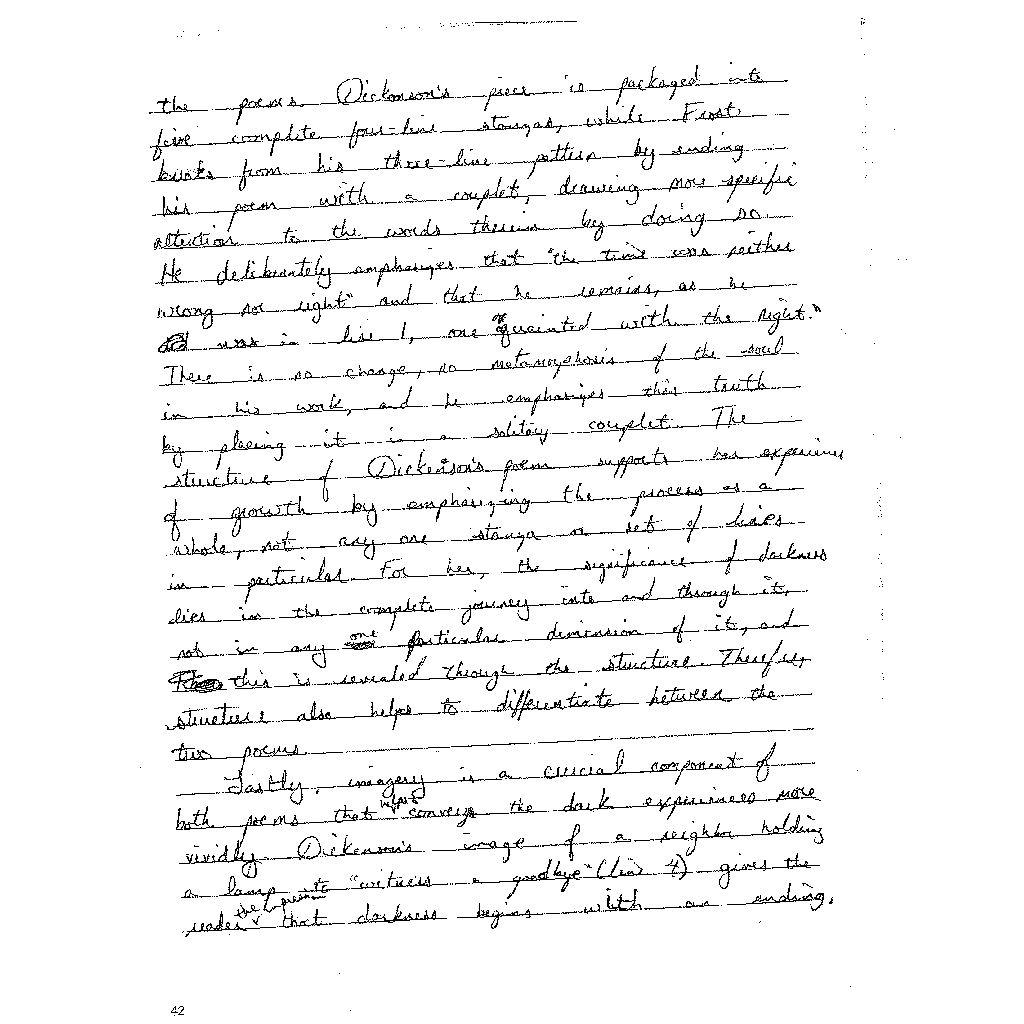 the poems. Dickonson's piece is packaged into
five complete four-line stanzas, while Frost
breaks from his three-line pattern by ending
his poem with a couplet, drawing more specific
attention to the words therein by doing so.
He deliberately emphasizes that "the time was neither
wrong nor right" and that he remains, as he
was in line 1, one "acquainted with the night."
There is no change, no metamorphosis of the soul
in his work, and he emphasizes this truth
by placing it in a solitary couplet. The
structure of Dickenson's poem supports her experience
of growth by emphasizing the process as a
whole, not any one stanza or set of lines
in particular. For her, the significance of darkness
lies in the complete journey into and through it,
not in any one particular dimension of it, and
this is revealed through the structure. Therefore,
structure also helps to differentiate between the
two poems.
Lastly, imagery is a crucial component of
both poems that helps convey the dark experiences more
vividly. Dickenson's image of a neighbor holding
a lamp to "witness a goodbye" (line 4) gives the
reader the impression that darkness begins with an ending,
42